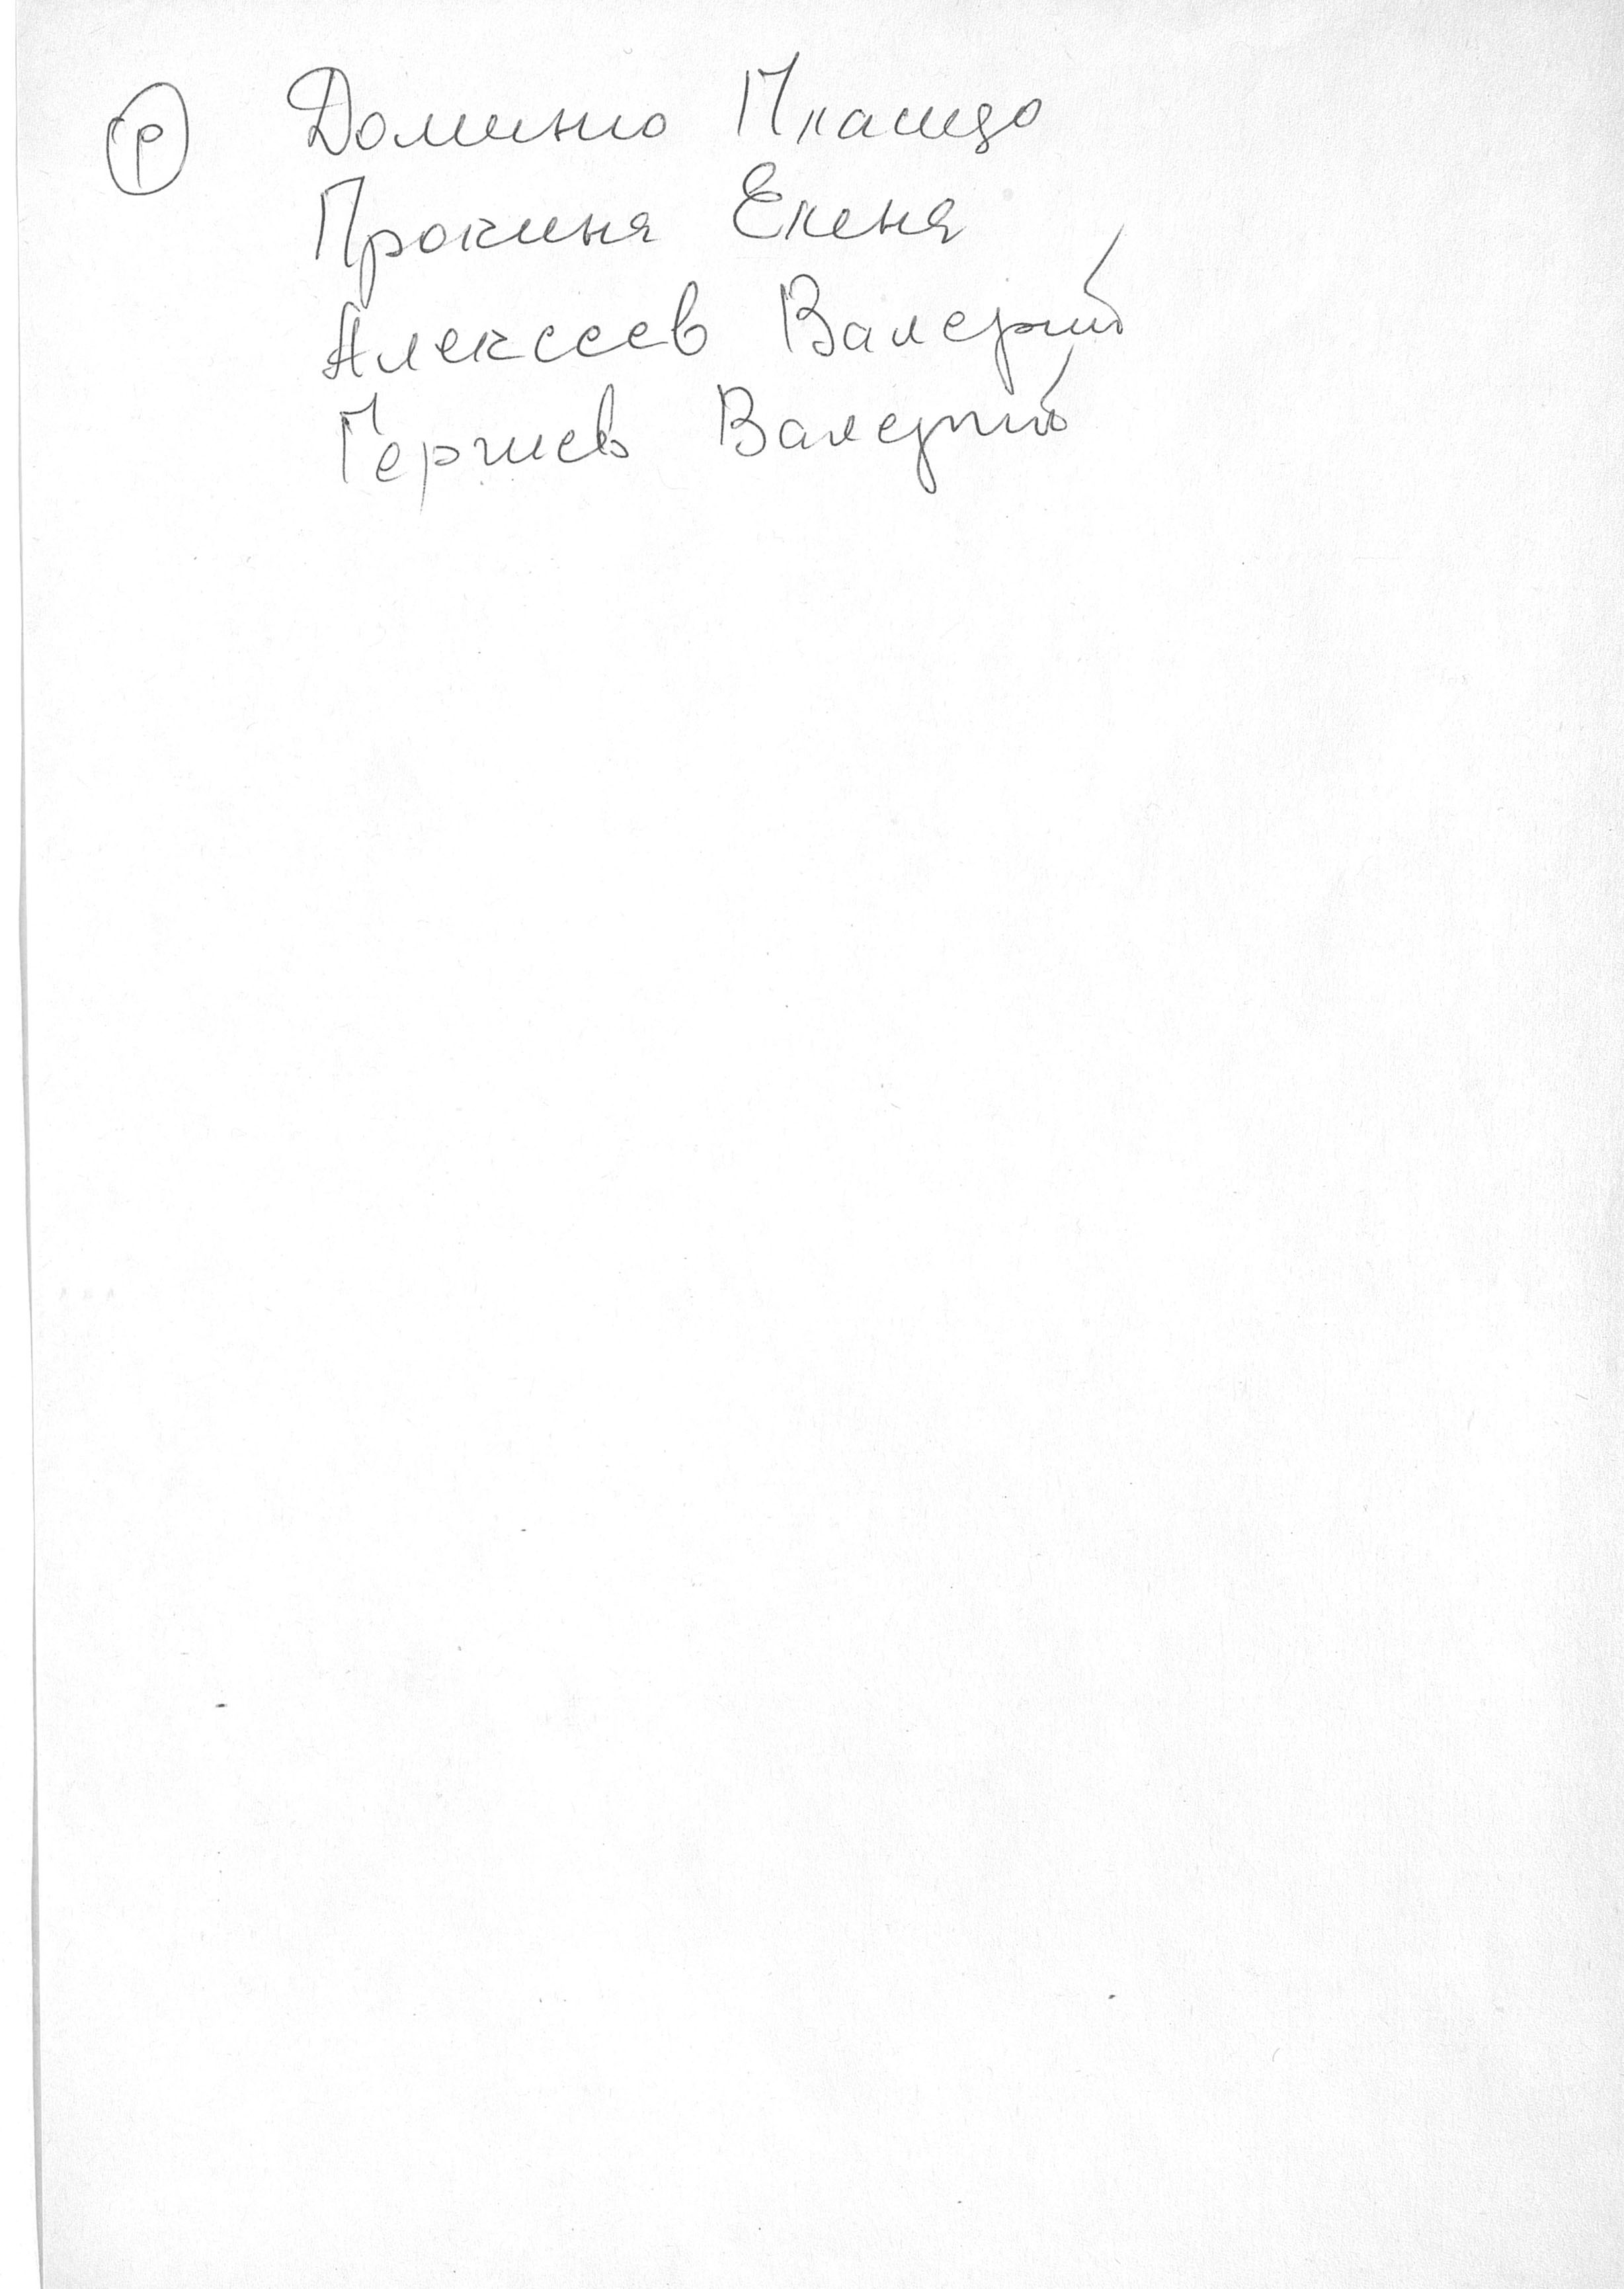 Р Доминго Пласидо
Прокина Елена
Алексеев Валерий
Гергиев Валерий